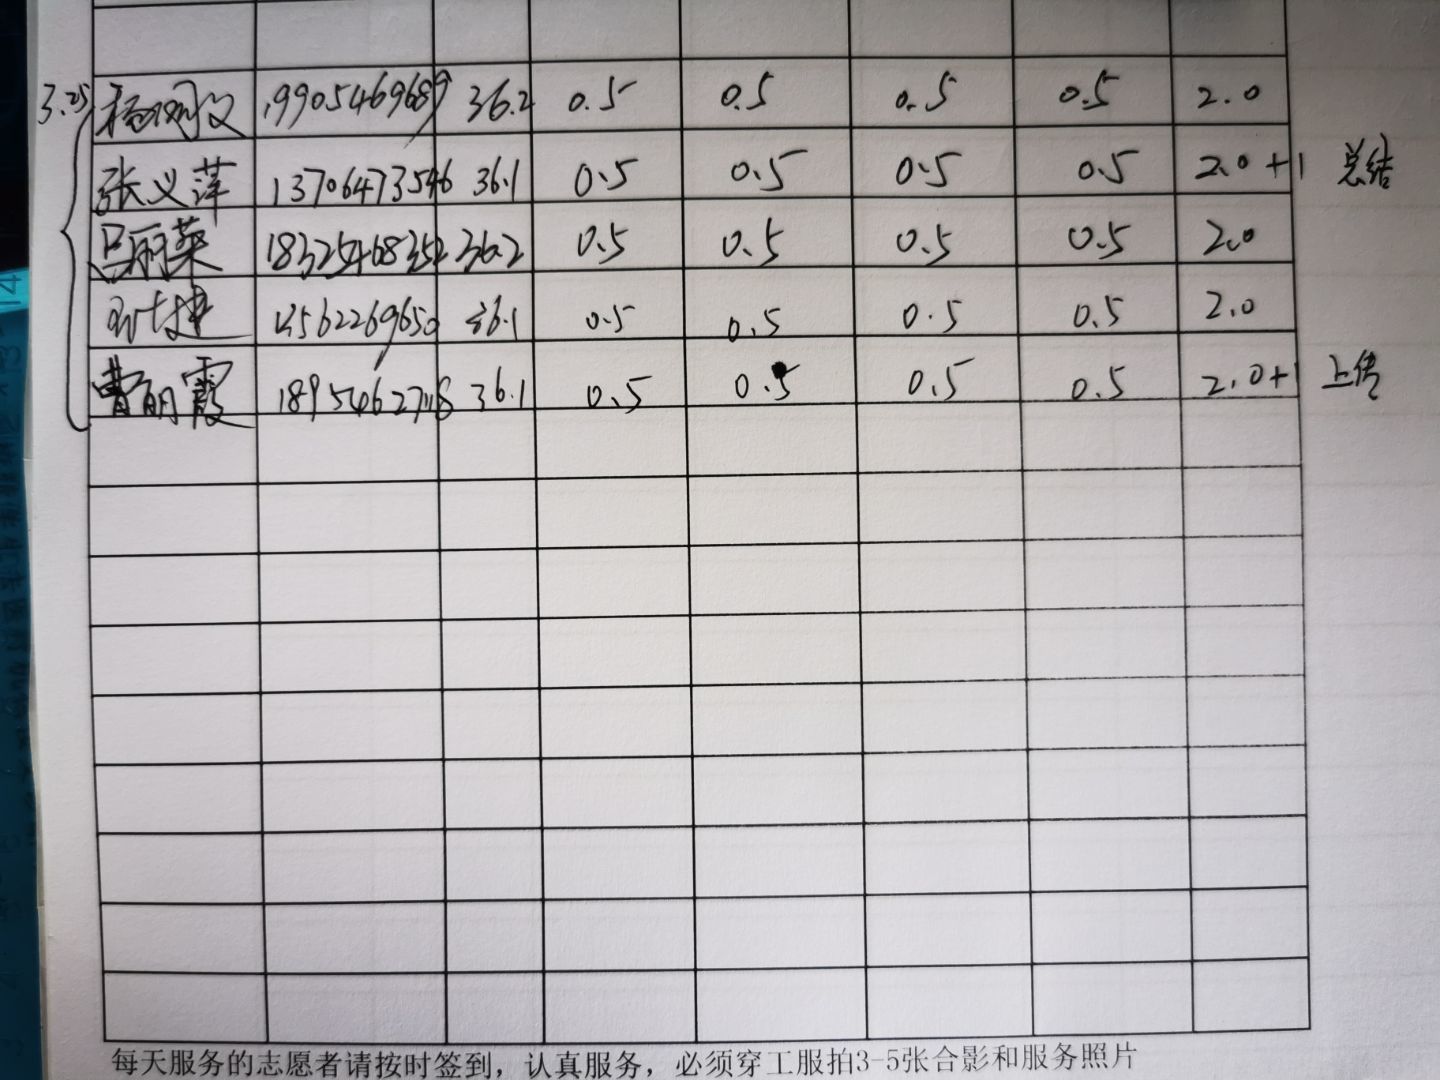 3.25 杨 19905469689 36.2 0.5 0.5 0.5 0.5 2.0
张义萍 13706473546 36.1 0.5 0.5 0.5 0.5 2.0+1 总结
吕丽荣 18325468352 36.2 0.5 0.5 0.5 0.5 2.0
捷 13562269650 36.1 0.5 0.5 0.5 0.5 2.0
曹丽霞 36.1 0.5 0.5 0.5 0.5 2.0+1 上传
每天服务的志愿者请按时签到，认真服务，必须穿工服拍3-5张合影和服务照片